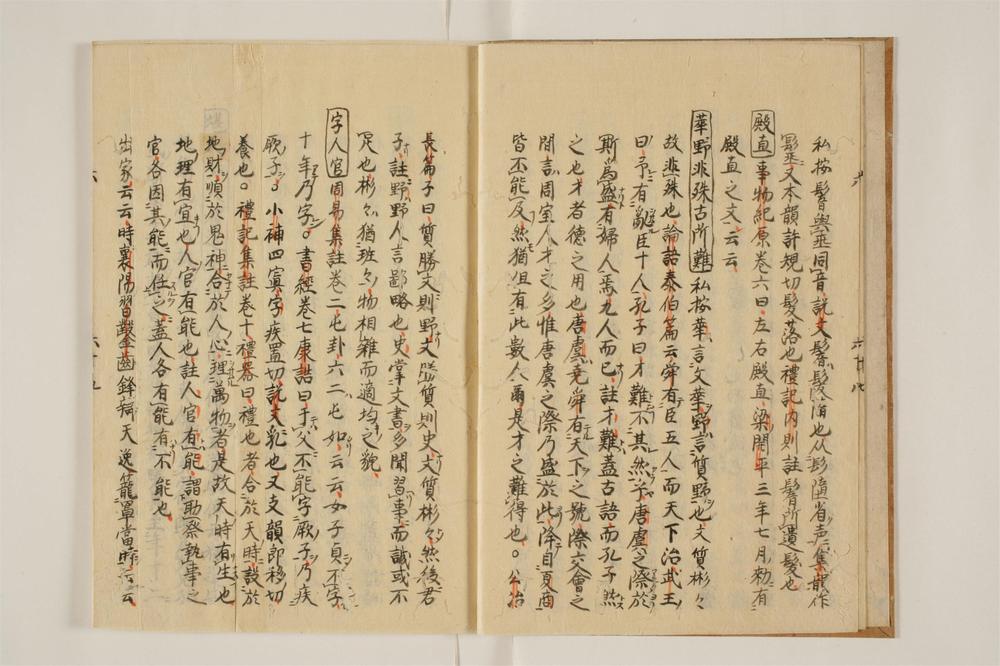 私按鬌與埀同音説文鬌髮隋也从髟隋省声集韻作
又本韻許規切髮落也禮記内則註鬌所遺髮也
殿直事物紀原巻六曰左右殿直梁開平三年七月勅有
殿直之文云云
華野非殊古所難私按華言文華野言質野也文質彬々
故非殊也論語泰伯篇云舜有臣五人而天下治武王
曰予有亂臣十人孔子曰才難不其然乎唐虞之際於
斯爲盛有婦人焉九人而已註才難蓋古語而孔子然
之也才者德之用也唐虞堯舜有天下之號際交會之
間言周室人才之多惟唐虞之際乃盛於此降自夏商
皆不能及然猶但有此數人爾是才之難得也〇公冶
長篇子曰質勝文則野文勝質則史文質彬々然後君
子註野野人言鄙略也史掌文書多聞習事而誠或不
足也彬々猶班々物相雜而適均之貌
字人官周易集註巻二屯卦六二屯如云云女子貞不字
十年乃字〇書經巻七康誥曰于父不能字厥子乃疾
厥子〇小補四寘字疾置切説文乳也又支韻即移切
養也〇禮記集註巻十禮器曰禮也者合於天時設於
地財順於鬼神合於人心理萬物者是故天時有生也
地理有宜也人官有能也註人官有能謂助祭執事之
官各因其能而任之蓋人各有能有不能也
出家云云時襄陽習鑿齒鋒辯天逸籠罩當時云云